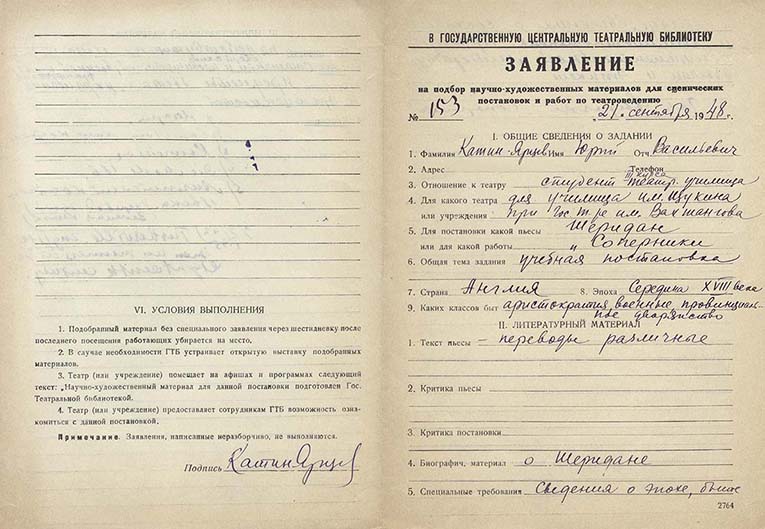 VI. УСЛОВИЯ ВЫПОЛНЕНИЯ
1. Подобранный материал без специального заявления через шестидневку после
последнего посещения работающих убирается на место.
2. В случае необходимости ГТБ устраивает открытую выставку подобранных
материалов.
3. Театр (или учреждение) помещает на афишах и программах следующий
текст: „Научно-художественный материал для данной постановки подготовлен Гос.
Театральной библиотекой.
4. Театр (или учреждение) предоставляет сотрудникам ГТБ возможность озна-
комиться с данной постановкой.
Примечание. Заявления, написанные неразборчиво, не выполняются.
Подпись Катин Ярцев
В ГОСУДАРСТВЕННУЮ ЦЕНТРАЛЬНУЮ ТЕАТРАЛЬНУЮ БИБЛИОТЕКУ
ЗАЯВЛЕНИЕ
на подбор научно-художественных материалов для сценических
постановок и работ по театроведению
№ 153 „21„ сентября 1948 г.
I. ОБЩИЕ СВЕДЕНИЯ О ЗАДАНИИ
1. Фамилия Катин-Ярцев Имя Юрий Отч. Васильевич
2. Адрес Телефон
3. Отношение к театру студент III курса театр. училища
4. Для какого театра для училища им. Щукина
или учреждения при Гос. т-ре им. Вахтангова
5. Для постановки какой пьесы Шеридан
или для какой работы „Соперники
6. Общая тема задания учебная постановка
7. Страна Англия 8. Эпоха Середина XVIII века
9. Каких классов быт аристократия, военные, провинциаль-
ное дворянство
II. ЛИТЕРАТУРНЫЙ МАТЕРИАЛ
1. Текст пьесы – переводы различные
2. Критика пьесы
3. Критика постановки
4. Биографич. материал о Шеридане
5. Специальные требования Сведения о эпохе, быте
2764